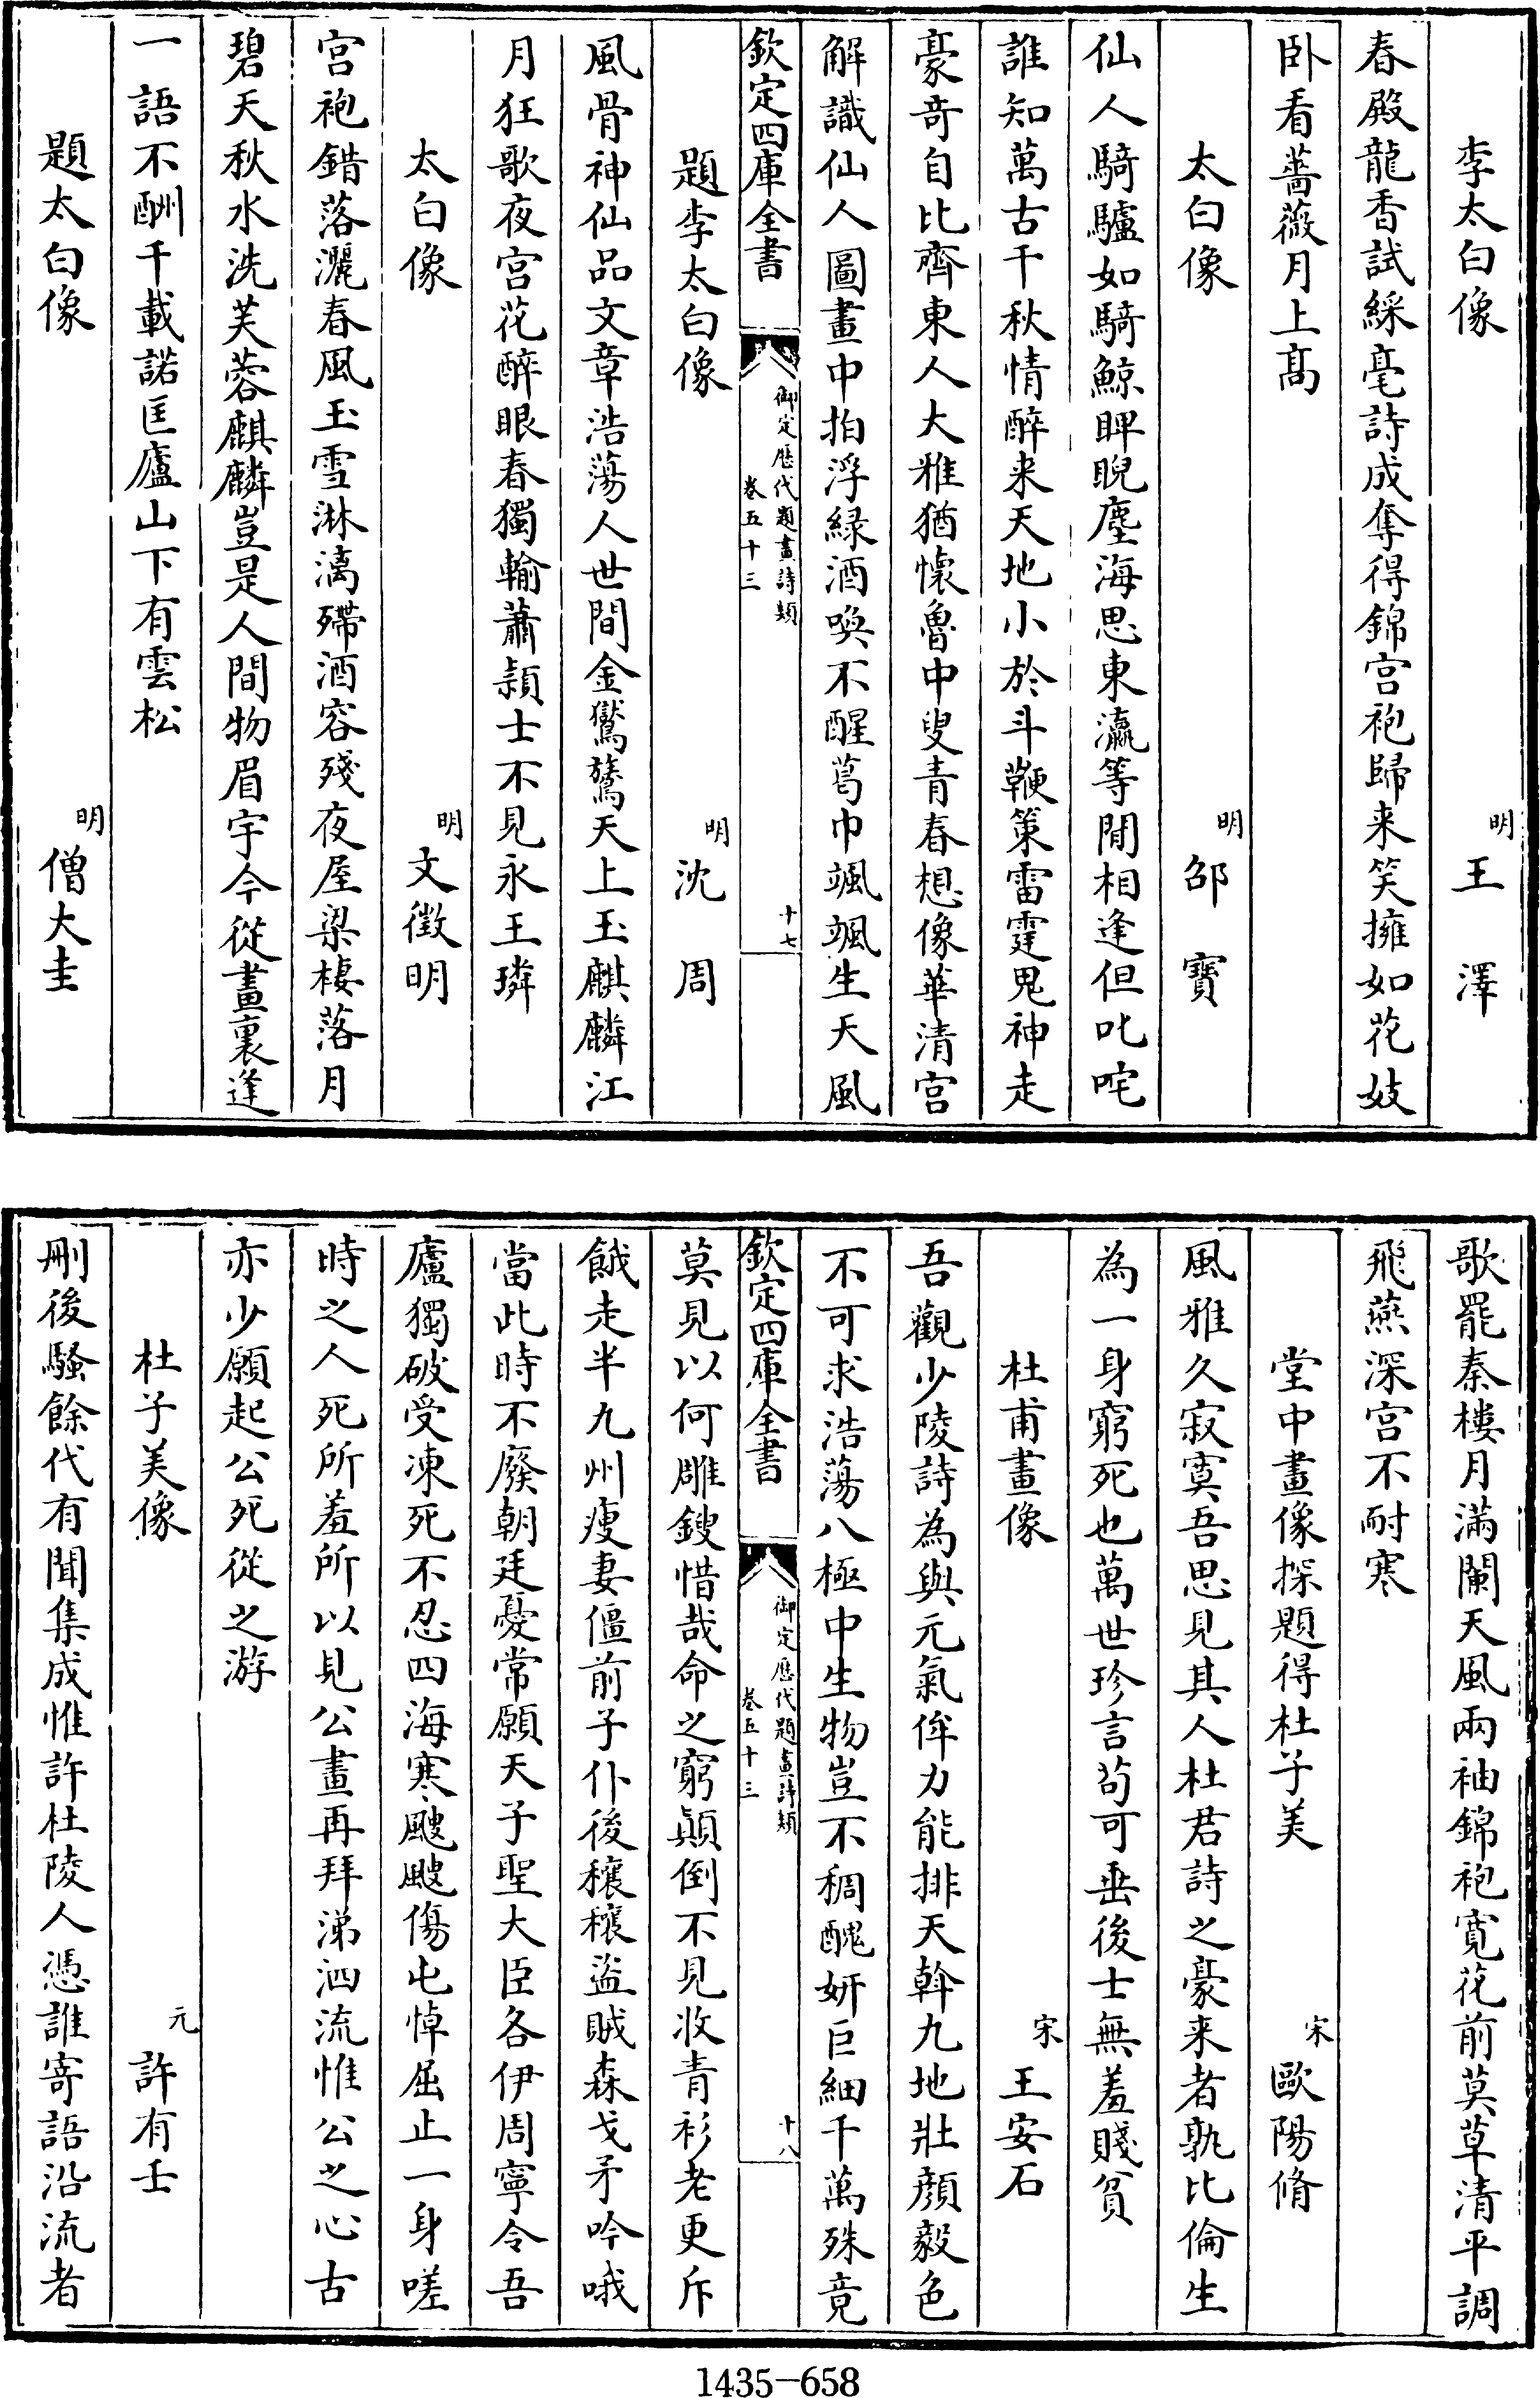 李太白像　明王澤
春殿龍香試綵毫詩成奪得錦宫袍歸来笑擁如花妓
卧看薔薇月上髙
太白像　明邵寶
仙人騎驢如騎鯨睥睨塵海思東瀛等閒相逢但叱咤
誰知萬古千秋情醉来天地小於斗鞭策雷霆鬼神走
豪竒自比齊東人大雅猶懷魯中叟青春想像華清宫
解識仙人圖畫中拍浮緑酒喚不醒葛巾颯颯生天風
欽定四庫全書　御定歷代題畫詩類　卷五十三　十七
題李太白像　明沈周
風骨神仙品文章浩蕩人世間金鸑鷟天上玉麒麟江
月狂歌夜宫花醉眼春獨輸蕭頴士不見永王璘
太白像　明文徵明
宫袍錯落灑春風玉雪淋漓殢酒容殘夜屋梁棲落月
碧天秋水洗芙蓉麒麟豈是人間物眉宇今從畫裏逢
一語不酬千載諾匡廬山下有雲松
題太白像　明僧大圭
歌罷秦樓月滿闌天風兩袖錦袍寛花前莫草清平調
飛燕深宫不耐寒
堂中畫像探題得杜子美　宋歐陽脩
風雅久寂寞吾思見其人杜君詩之豪来者孰比倫生
為一身窮死也萬世珍言苟可垂後士無羞賤貧
杜甫畫像　宋王安石
吾觀少陵詩為與元氣侔力能排天斡九地壯顔毅色
不可求浩蕩八極中生物豈不稠醜妍巨細千萬殊竟
欽定四庫全書　御定歷代題畫詩類　卷五十三　十八
莫見以何雕鎪惜哉命之窮顛倒不見收青衫老更斥
餓走半九州瘦妻僵前子仆後穰穰盜賊森戈矛吟哦
當此時不廢朝廷憂常願天子聖大臣各伊周寧令吾
廬獨破受凍死不忍四海寒颼颼傷屯悼屈止一身嗟
時之人死所羞所以見公畫再拜涕泗流惟公之心古
亦少願起公死從之游
杜子美像　元許有壬
刪後騷餘代有聞集成惟許杜陵人憑誰寄語沿流者
1435-658